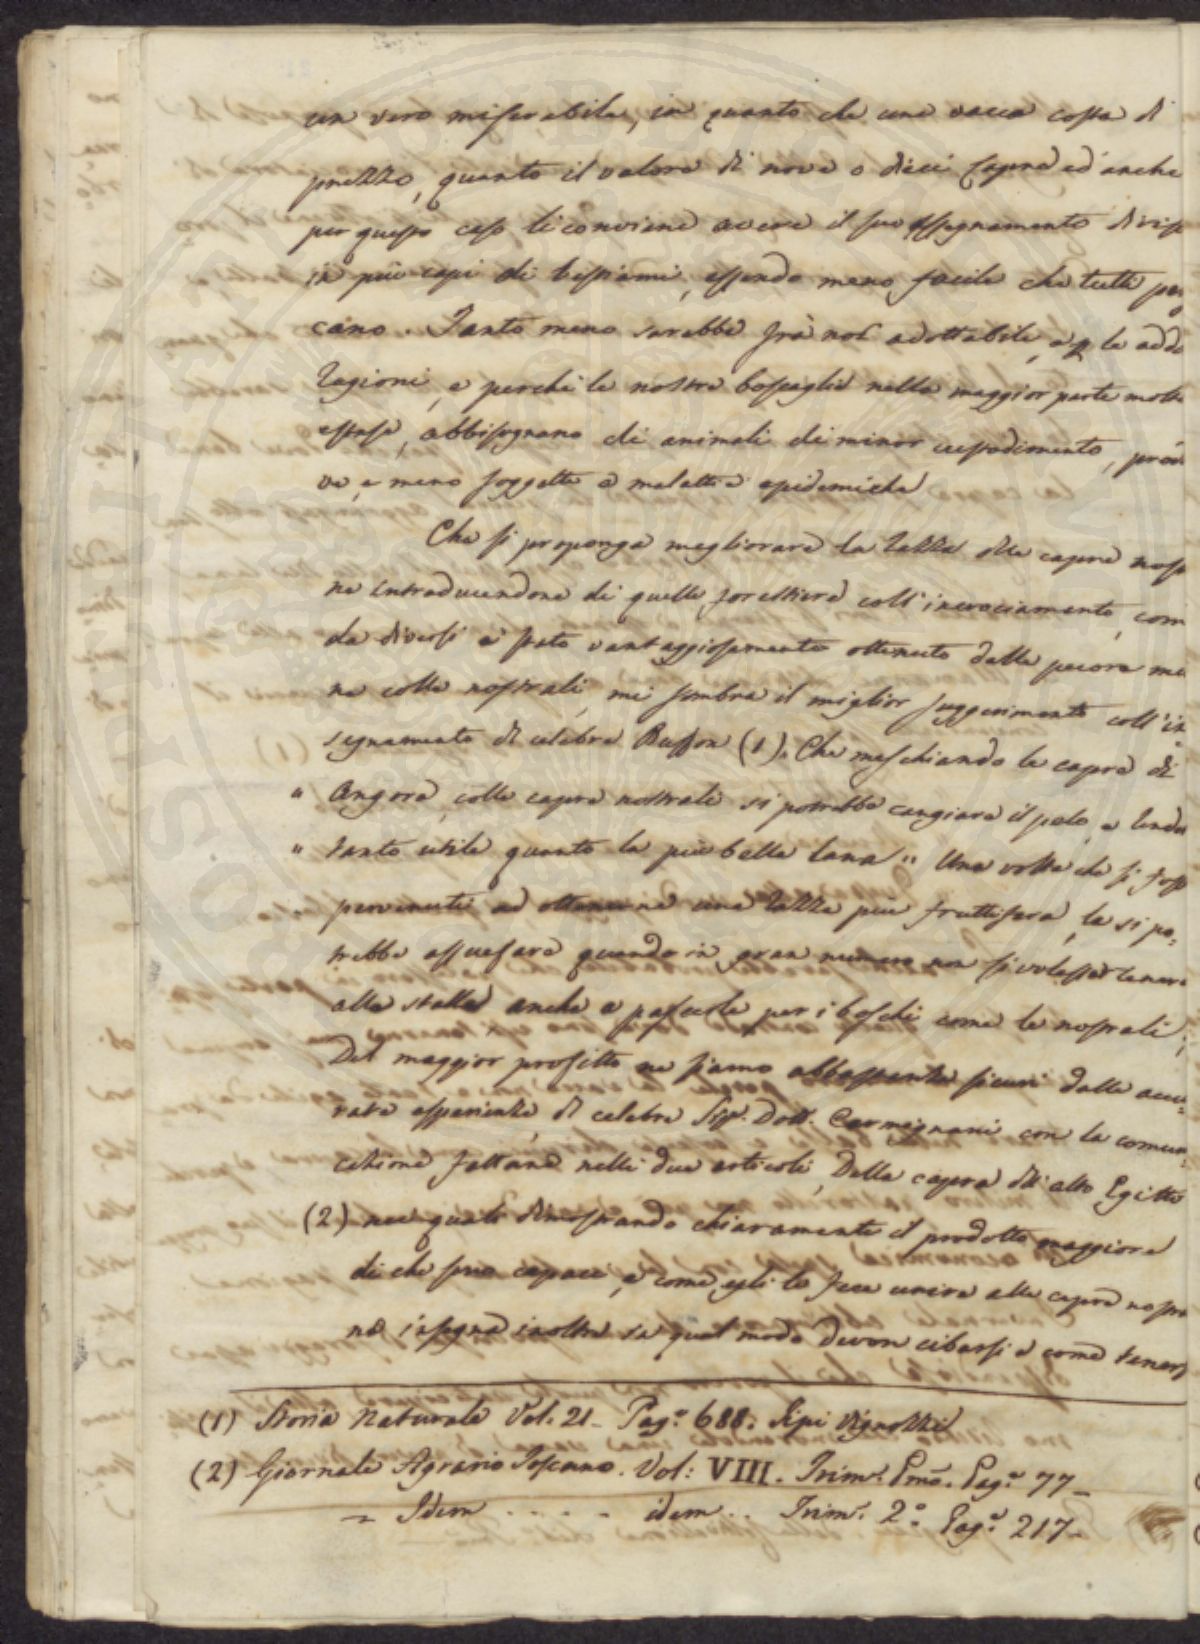 un vero miserabile, in quanto che una vacca costa di
prezzo, quanto il valore di nove o dieci Capre ed anche
per questo caso li conviene avere il suo assegnamento divis
in più capi di bestiami, essendo meno facile che tutti pe
cano. Tanto meno sarebbe frà noi adottabile, e p le adde
ragioni, e perchè le nostre boscaglie nella maggior parte molto
estese, abbisognano di animali di minor custodimento, prov
ve, e meno soggette a malattie epidemiche
Che si proponga megliorare la razza delle capre nost
ne introducendone di quelle forestiere coll'incrociamento, com
da diversi è stato vantaggiosamente ottenuto dalle pecore me
ne colle nostrali, mi sembra il miglior suggerimento coll'in
segnamento di celebre Buffon (1). Che meschiando le capre di
" Angora, colle capre nostrali si potrebbe cangiare il pelo, e rende
" tanto utile quanto la più bella lana " Una volta che si foss
pervenuti ad ottenerne una razza più fruttifera, la si po=
trebbe assuefare quando in gran numero non si volesse tenere
alla stalla anche a pascerle per i boschi come le nostrali;
Del maggior profitto ne siamo abbastanza sicuri dalle accu=
rate esperienze di celebre Sigr. Dott. Carmignani con la comun
cazione fattane nelli due articoli, Della capra dell'alto Egitto
(2) nei quali dimostrando chiaramente il prodotto maggiore
di che sono capaci, e come egli le fece unire alle capre nostra
ne insegna inoltre in qual modo devon cibarsi e come teners
(1) Storia Naturale Vol. 21 - Pag.e 688. Tipi Vignozzi
(2) Giornale Agrario Toscano. Vol: VIII. Trim.e Pmo. Pag.e 77 -
= Idem . . . . . idem . . Trim.e 2.° Pag.e 217 -